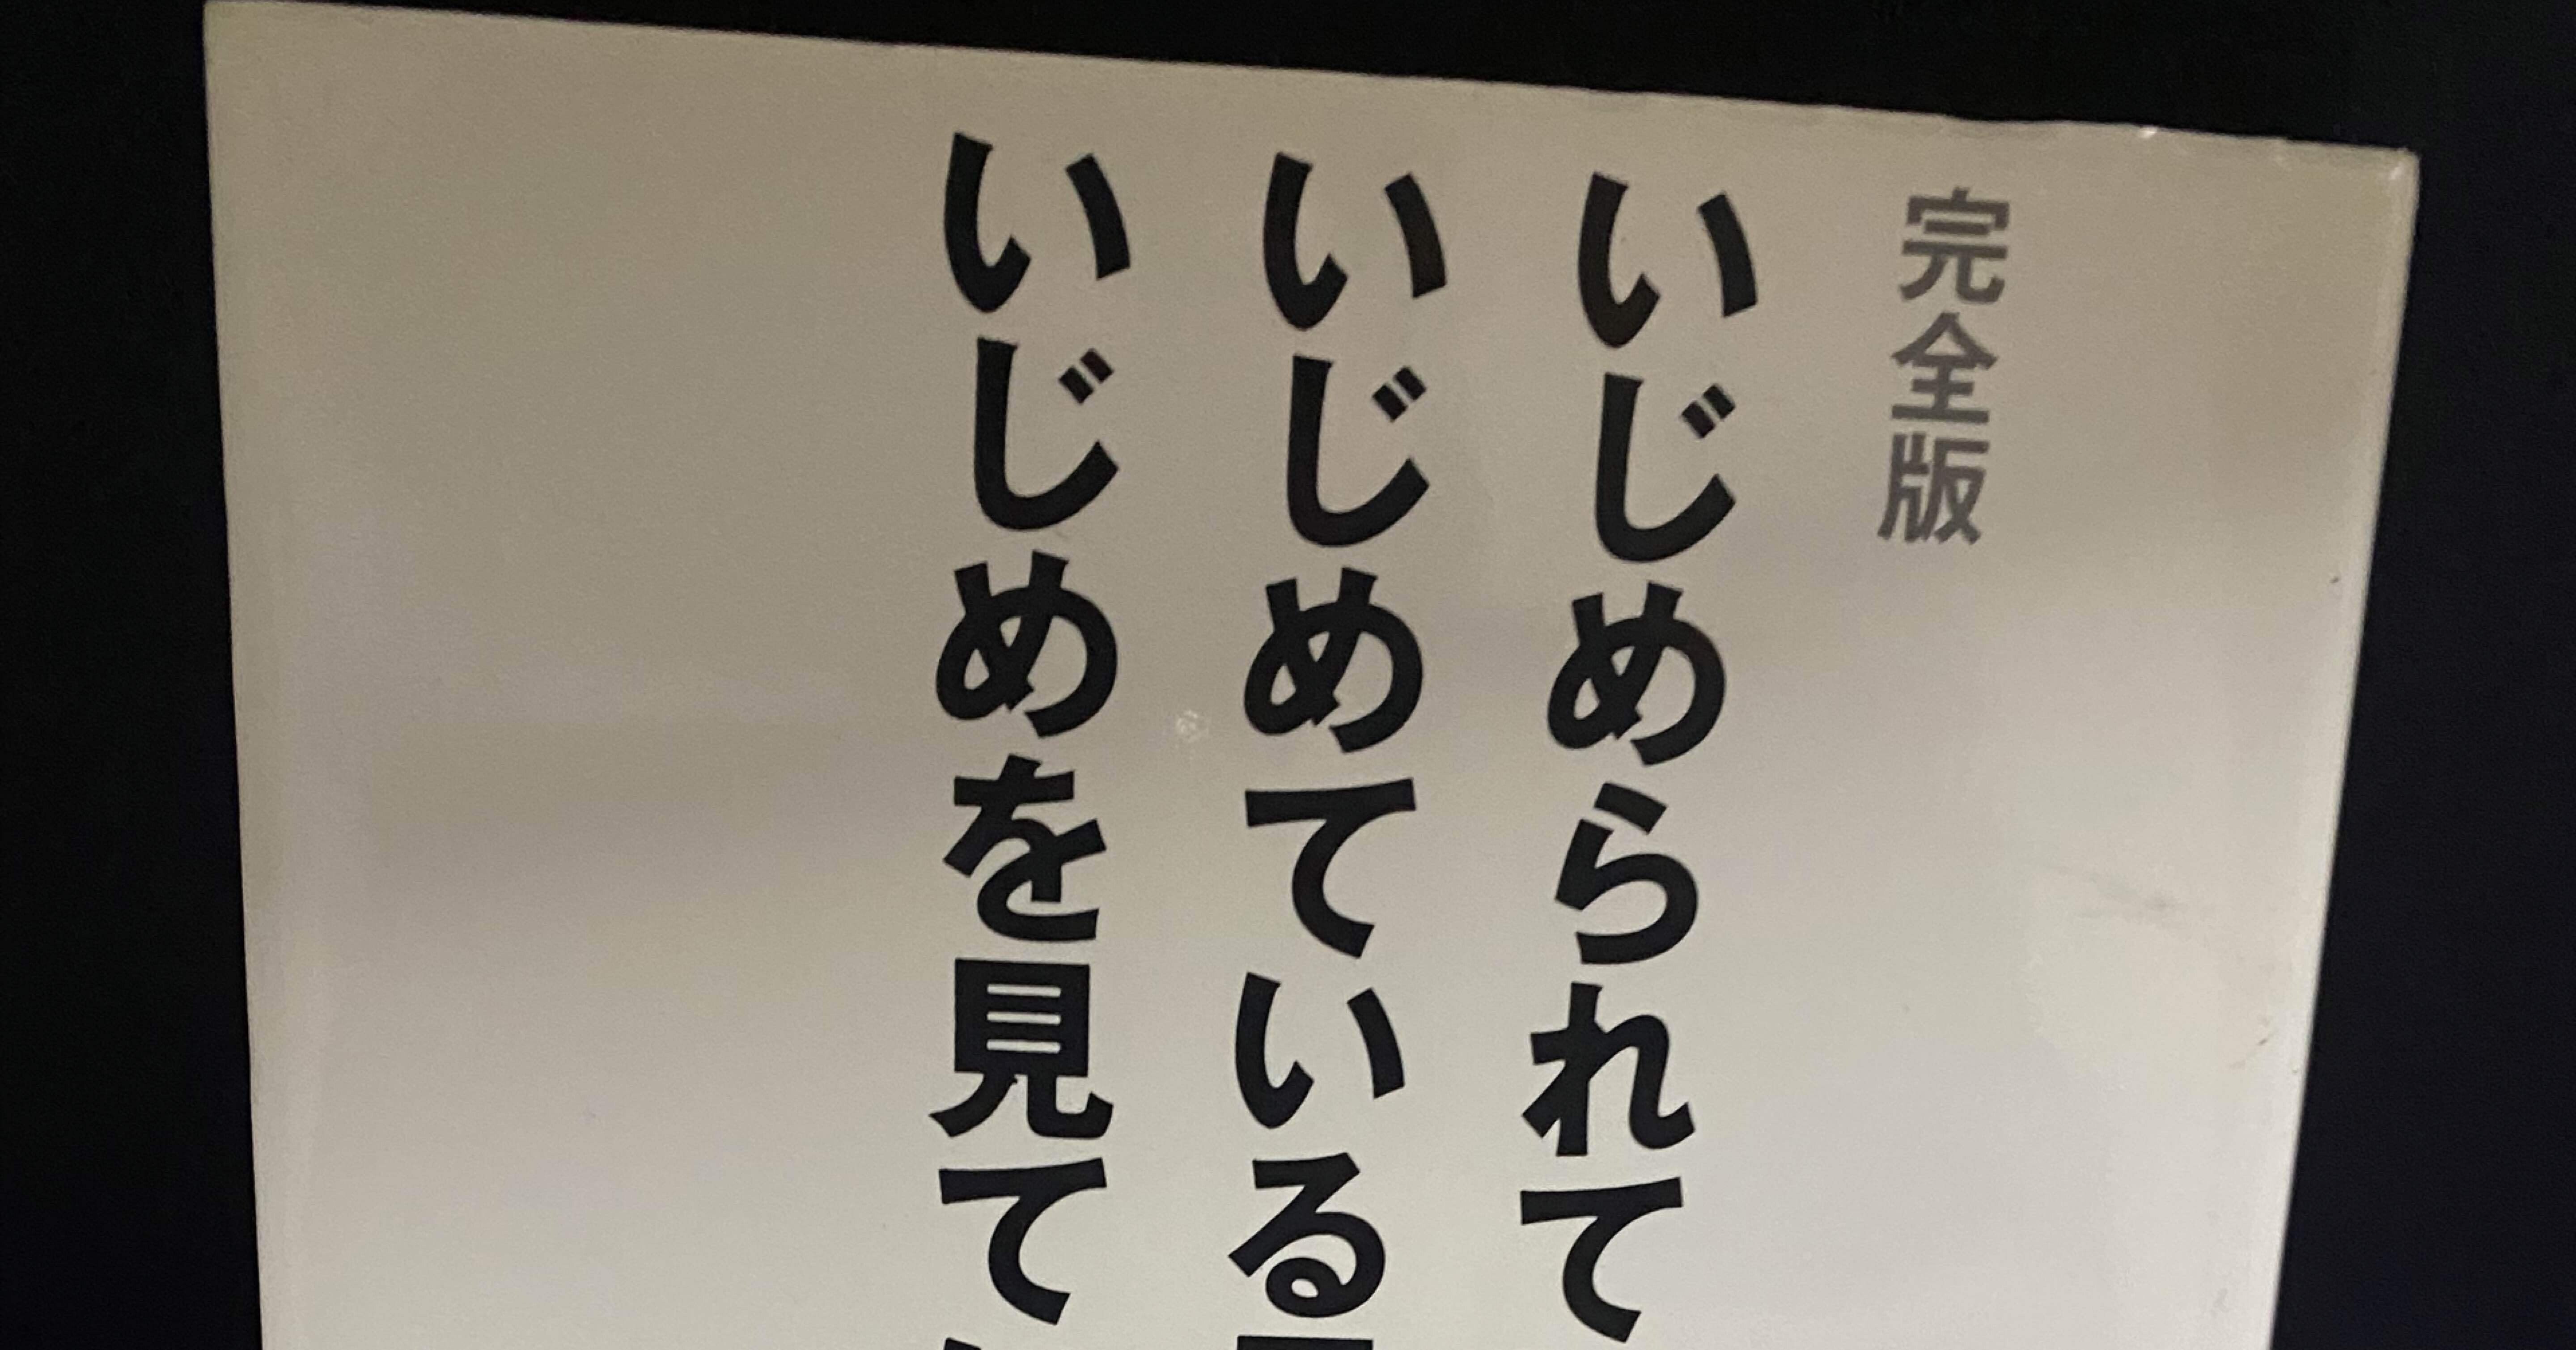 完全版
いじめられて
いじめている
いじめを見て